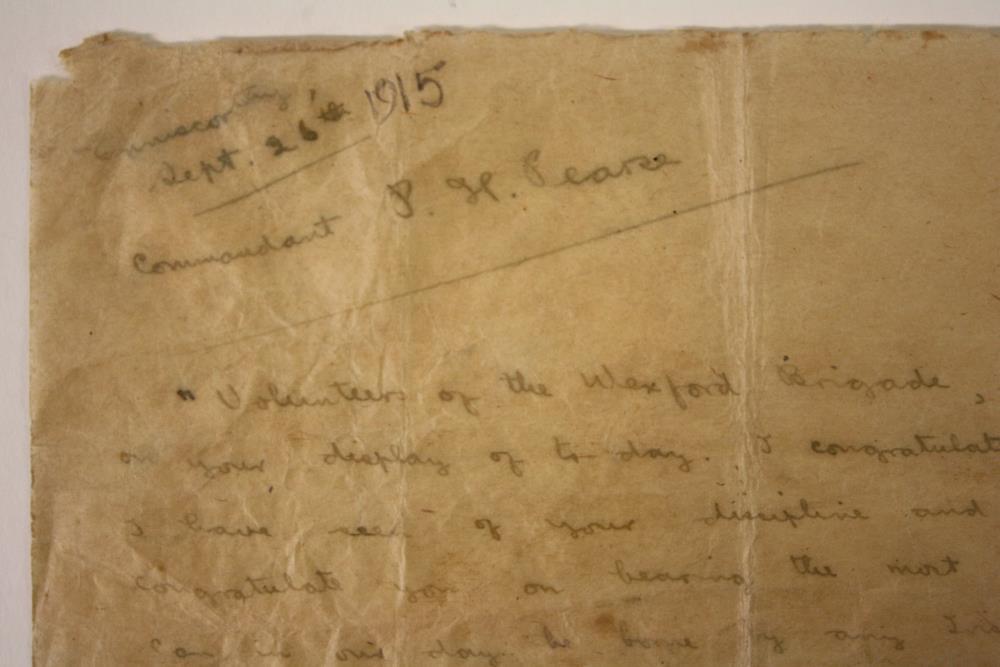 Enniscorthy,
Sept. 26th 1915
Commandant P. H. Pearse
" Volunteers of the Wexford Brigade,
on your display of to-day. I congratulate
I have seen of your discipline and
congratulate you on bearing the most
can in our day be borne by any